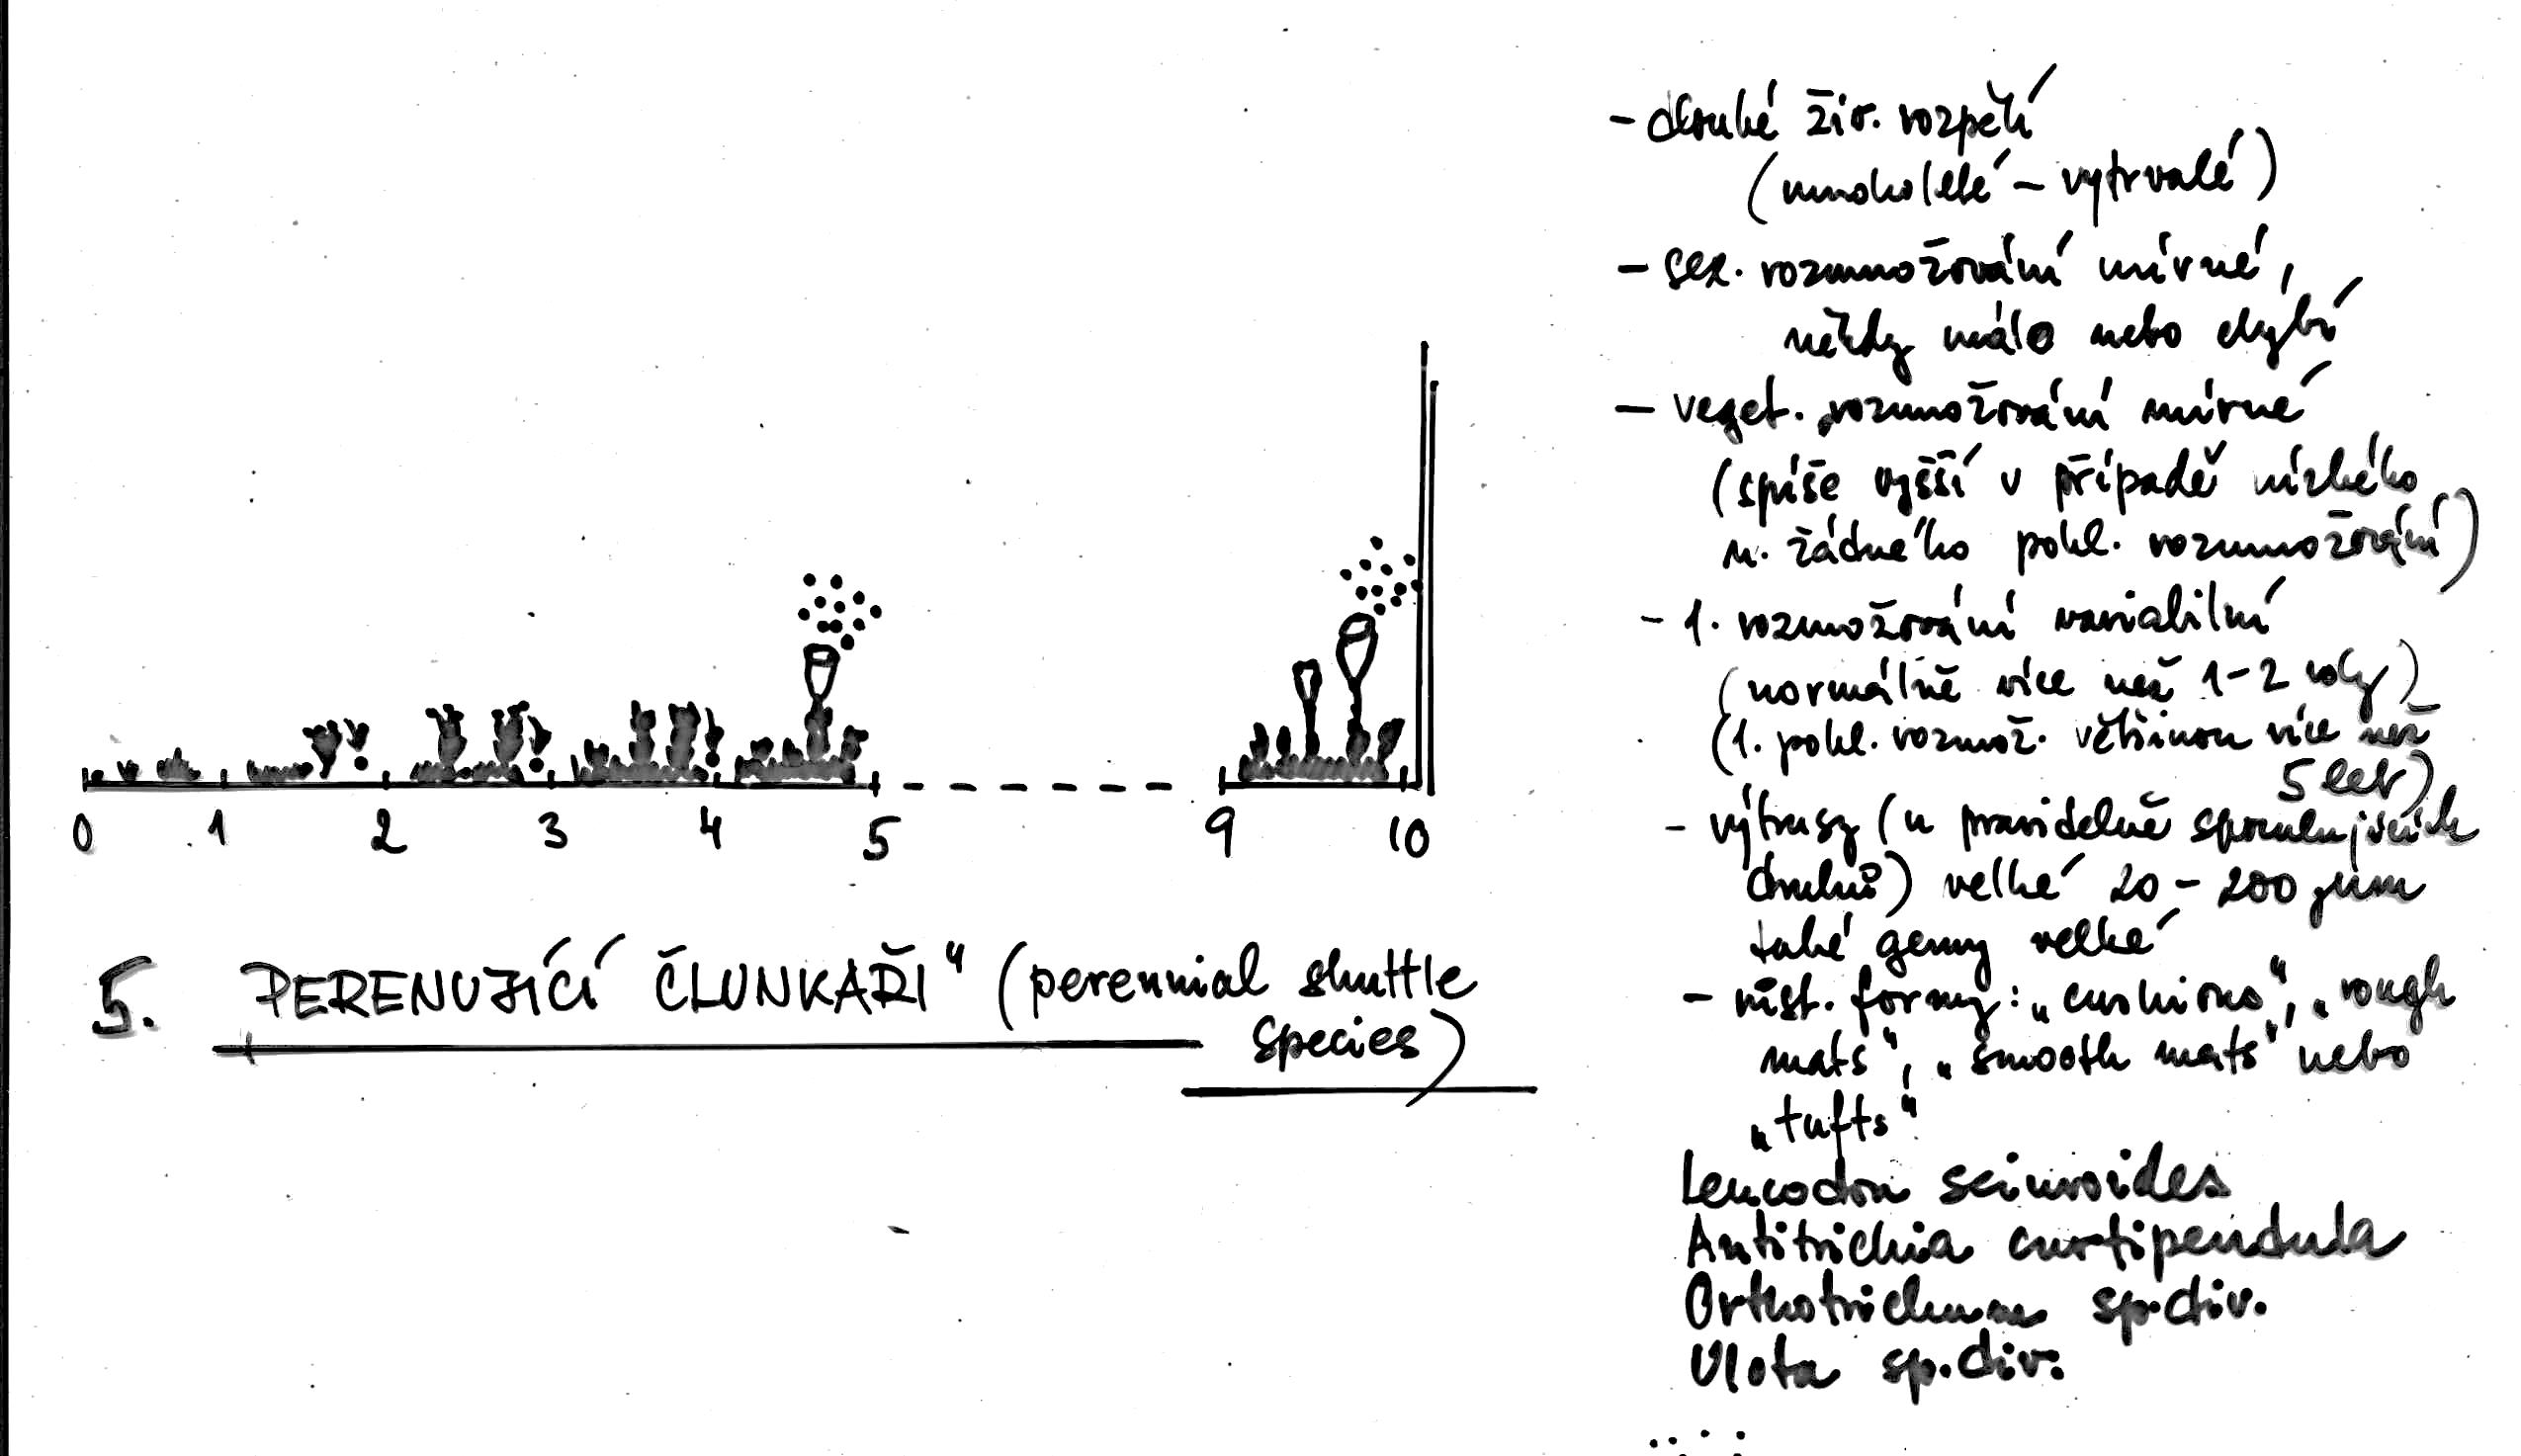 0 1 2 3 4 5 9 10
5. PERENUJÍCÍ ČLUNKAŘI" (perennial shuttle
species)
- dlouhé živ. rozpětí
(mnoholeté - vytrvalé)
- sex. rozmnožování mírné,
někdy málo nebo chybí
- veget. rozmnožování mírné
(spíše vyšší v případě nízkého
n. žádného pohl. rozmnožování)
- 1. rozmožování variabilní
(normálně více než 1-2 roky)
(1. pohl. rozmož. většinou více než
5 let)
- výtrusy (u pravidelně sporulujících
druhů) velké 20 - 200 µm
také gemy velké
- růst. formy: „cushions", „rough
mats", „smooth mats" nebo
„tufts"
Leucodon sciuroides
Antitrichia curtipendula
Orthotrichum sp.div.
Ulota sp.div.